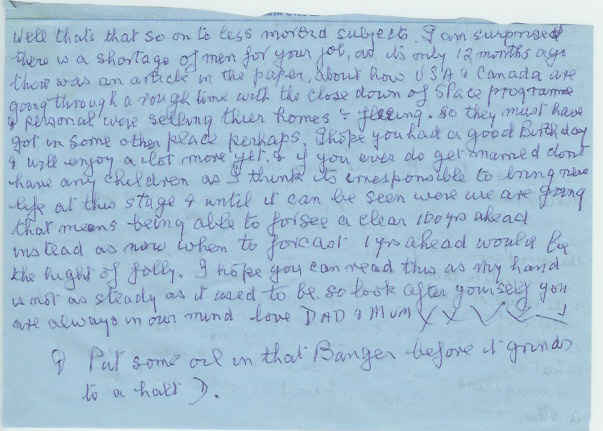 well thats that so on to less morbid subjects. I am surprised
there is a shortage of men for your job, as its only 12 months ago
there was an article in the paper, about how USA & Canada are
going through a rough time with the close down of Space programme
& personal were selling thier homes & fleeing. so they must have
got in some other place perhaps. I hope you had a good Birthday
& will enjoy a lot more yet. & if you ever do get married dont
have any children as I think its irresponsible to bring new
life at this stage & until it can be seen were we are going
that means being able to forsee a clear 100 yrs ahead
instead as now when to forcast 1 yrs ahead would be
the hight of folly. I hope you can read this as my hand
is not as steady as it used to be. so look after yourself you
are always in our mind love DAD & MUM X X
Put some oil in that Banger before it grinds
to a halt ).